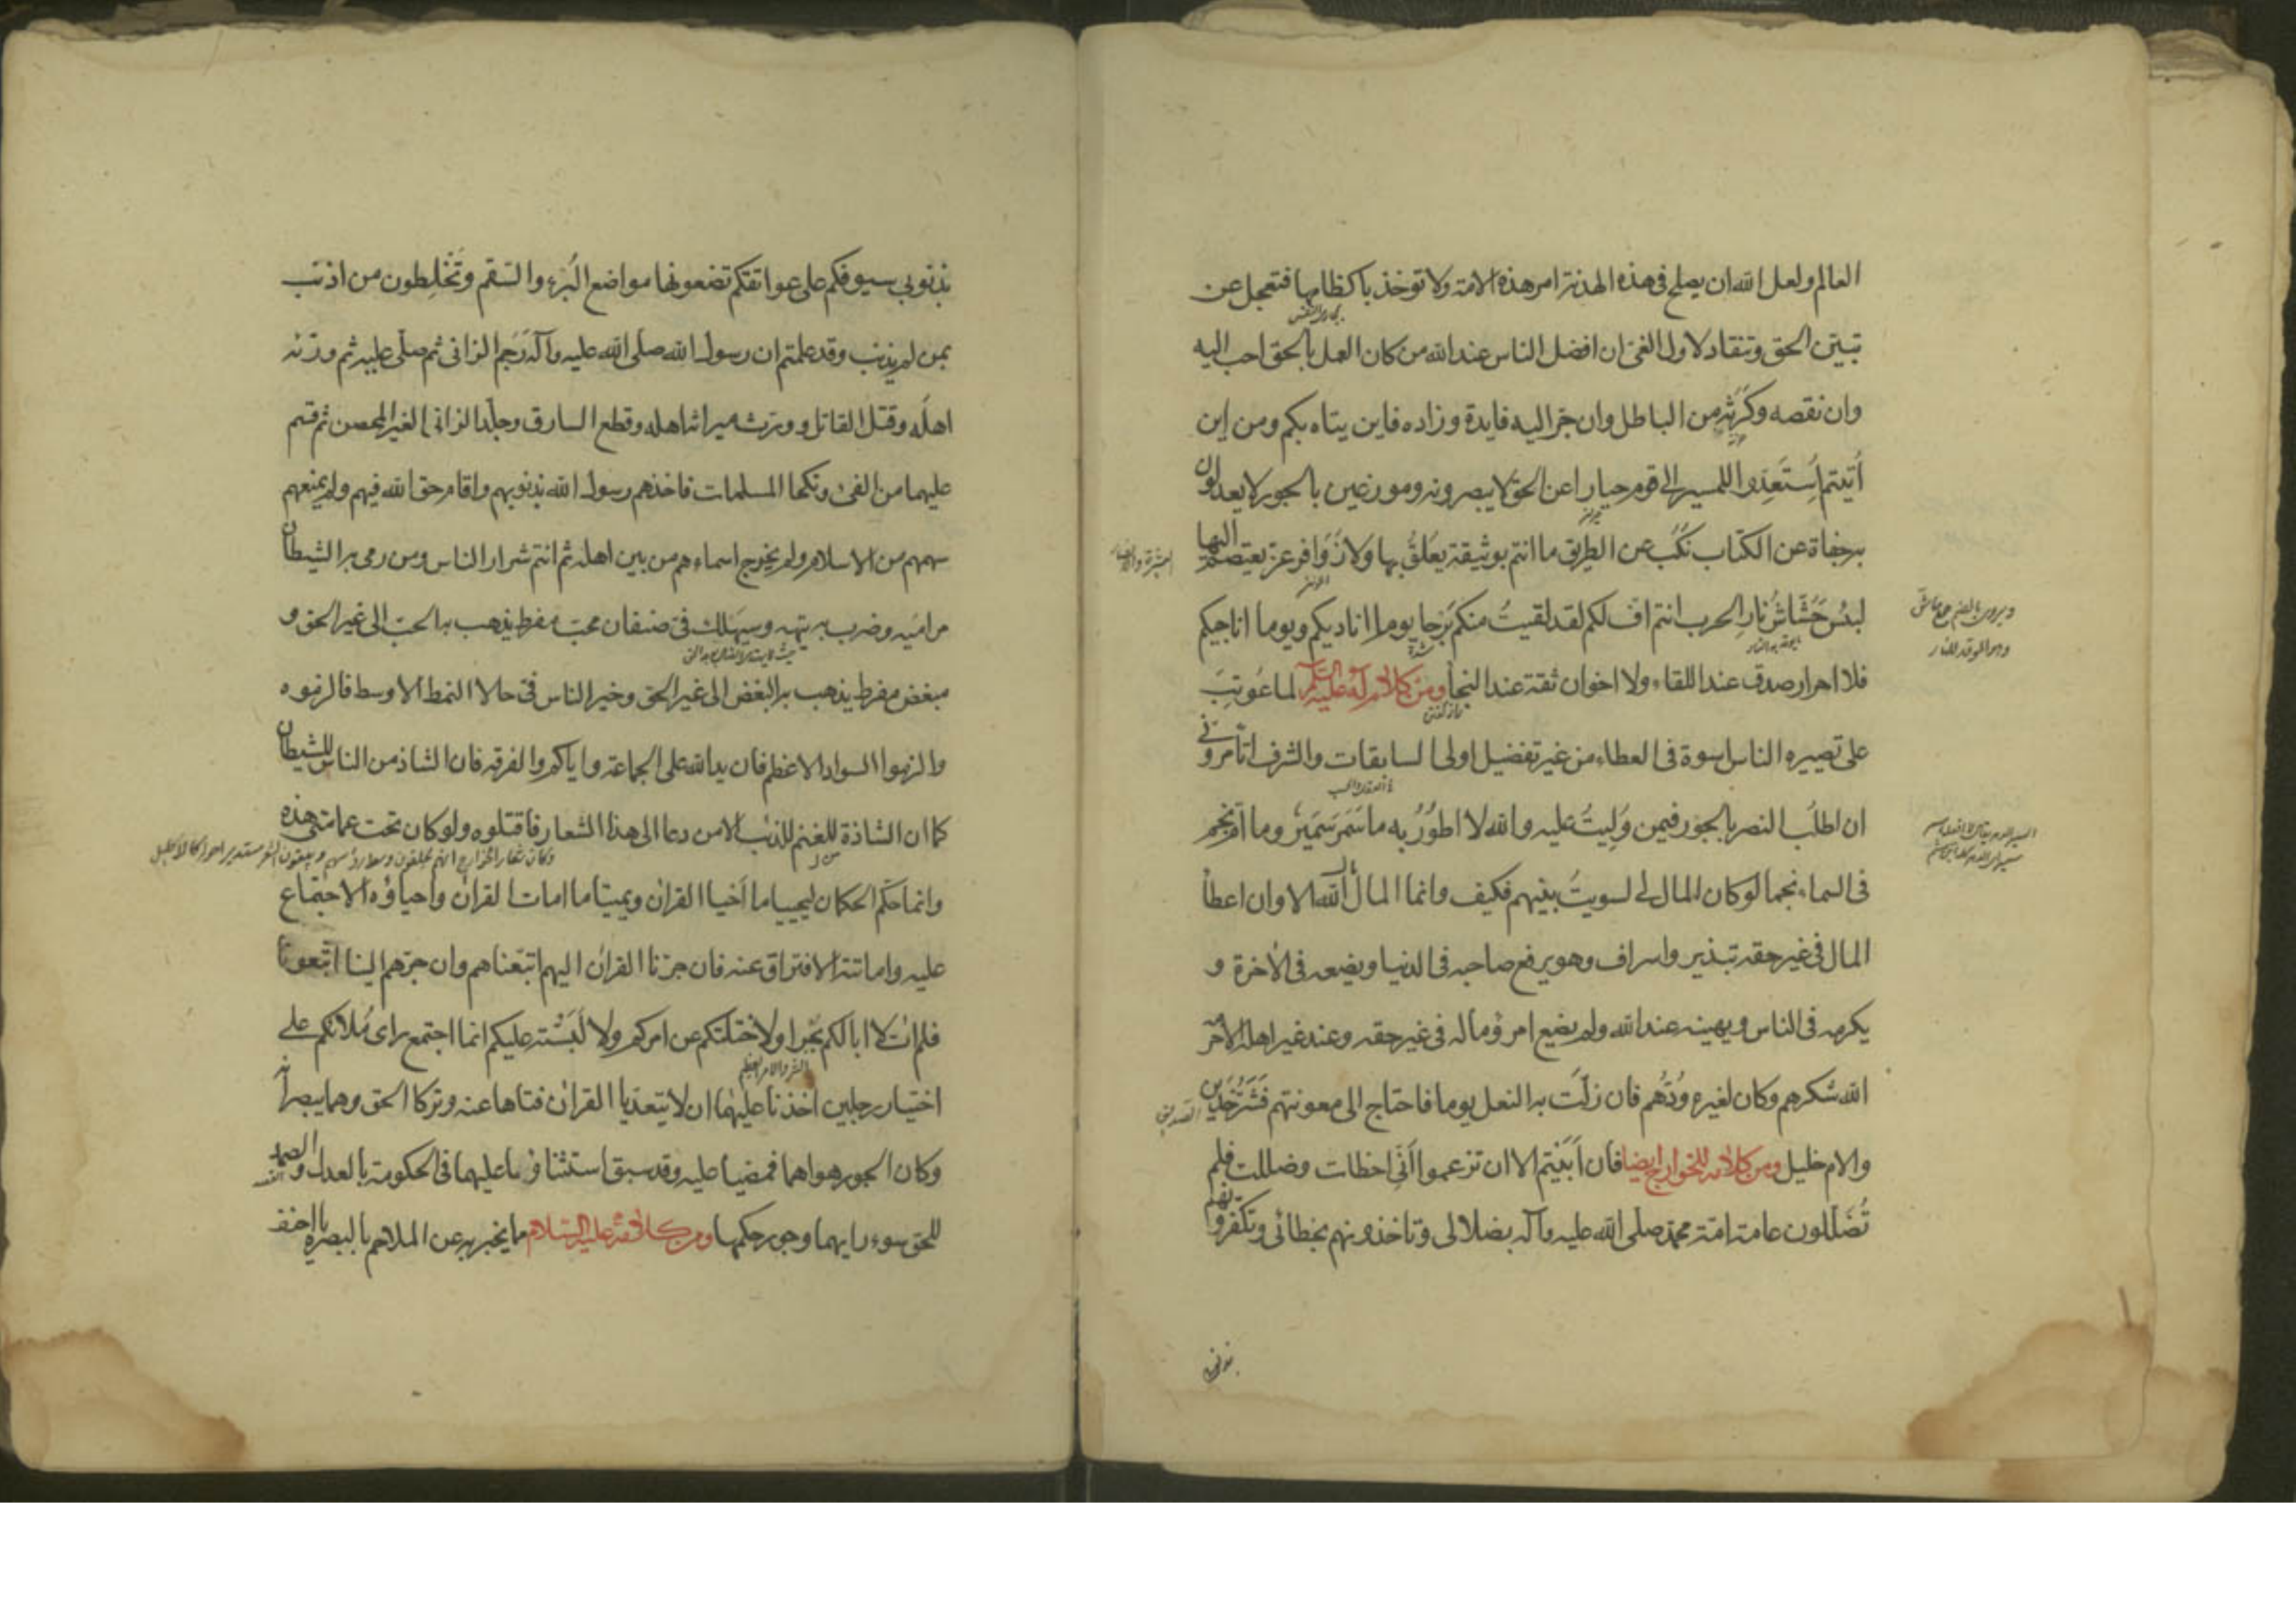 العالم ولعل الله ان يصلح فى هذه الهدنة امر هذه الامة ولا توخذ باكظامها فتعجل عن
تبيّن الحق وتنقاد لاول الغىّ ان افضل الناس عند الله من كان العمل بالحق احب اليه
وان نقصه وكَرَثَه من الباطل وان جرّ اليه فايدة وزاده فاين يتاه بكم ومن اين
اُتيتم اِستَعِدّوا للمسير الى قوم حيارا عن الحق لا يبصرونه وموزعين بالجور لا يعدلون
به جفاة عن الكتاب نُكُب عن الطريق ما انتم بوثيقة يعلَقُ بها ولا زَوَافر عز يعتصم اليها
لبئس حُشّاشُ نار الحرب انتم اف لكم لقد لقيتُ منكم بَرَحا يوما اناديكم ويوما اناجيكم
فلا احرار صدق عند اللقاء ولا اخوان ثقة عند النجأ ومن كلام له عليه السّلم لما عُوتِبَ
على تصييره الناس اسوة فى العطاء من غير تفضيل اولى السابقات والشرف اتأمرونّى
ان اطلُب النصر بالجور فيمن وُلِيتُ عليه والله لا اطُورُ به ما سَمَر سَمَير وما اَمّ نجم
فى السماء نجما لو كان المال لى لسويتُ بينهم فكيف وانما المال مال الله الا وان اعطأ
المال فى غير حقه تبذير واسراف وهو يرفع صاحبه فى الدنيا ويضعه فى الاخرة و
يكرمه فى الناس ويهينه عند الله ولم يضع امرؤ ماله فى غير حقه وعند غير اهله الا حرّمه
الله شكرهم وكان لغيره وُدُّهم فان زلّت به النعل يوما فاحتاج الى معونتهم فشرّ خدين
والام خليل ومن كلامه للخوارج ايضا فان اَبَيتم الا ان تزعموا اَنّى اخطات وضللت فلم
تُضَلّلون عامة امّة محمد صلى الله عليه وآله بضلالى وتاخذونهم بخطائى وتكفّرونهم
بذنوبى سيوفكم على عواتقكم تضعونها مواضع البُرء والسّقم وتَخْلِطون من اذنب
بمن لم يذنب وقد علمتم ان رسول الله صلى الله عليه وآله رَجَم الزانى ثم صلّى عليه ثم ورّثه
اهلَه وقتل القاتل وورّث ميراثه اهله وقطع السارق وجلَد الزانى الغير المحصن ثم قسم
عليهما من الفىء ونكحا المسلمات فاخذهم رسول الله بذنوبهم واقام حق الله فيهم ولم يمنعهم
سهمهم من الاسلام ولم يخرج اسماءهم من بين اهله ثم انتم شرار الناس ومن رمى به الشيطان
مراميه وضرب به تيهه وسيهلك فىّ صنفان محبّ مفرط يذهب به الحبّ الى غير الحق و
مبغض مفرط يذهب به البغض الى غير الحق وخير الناس فىّ حالا النمط الاوسط فالزموه
والزموا السواد الاعظم فان يد الله على الجماعة واياكم والفرقة فان الشاذ من الناس للشيطان
كما ان الشاذة للغنم للذئب الا من دعا الى هذا الشعار فاقتلوه ولو كان تحت عمامتى هذه
وكان شعار الخوارج انهم يحلقون وسط رؤسهم ويبقون الشعر مستديرا حوله كالاكليل
وانما حَكَم الحكمان ليحييا ما اَحْيا القرآن ويميتا ما امات القرآن واحياؤه الاجتماع
عليه واماتته الافتراق عنه فان جرّنا القران اليهم اتبعناهم وان جرّهم الينا اتبعونا
فلم اٰت لا ابا لكم بُجْرا ولا ختلتكم عن امركم ولا لَبّسْته عليكم انما اجتمع راى مَلائكم على
اختيار رجلين اخذنا عليهما ان لا يتعدّيا القران فتاها عنه وتركا الحق وهما يبصرانه
وكان الجور هواهما فمضيا عليه وقد سبق استثناؤنا عليهما فى الحكومة بالعدل والصمد
للحق سوء رايهما وجور حكمهما ومن كلامه عليه السّلام فيما يخبر به عن الملاحم بالبصرة يا احنف